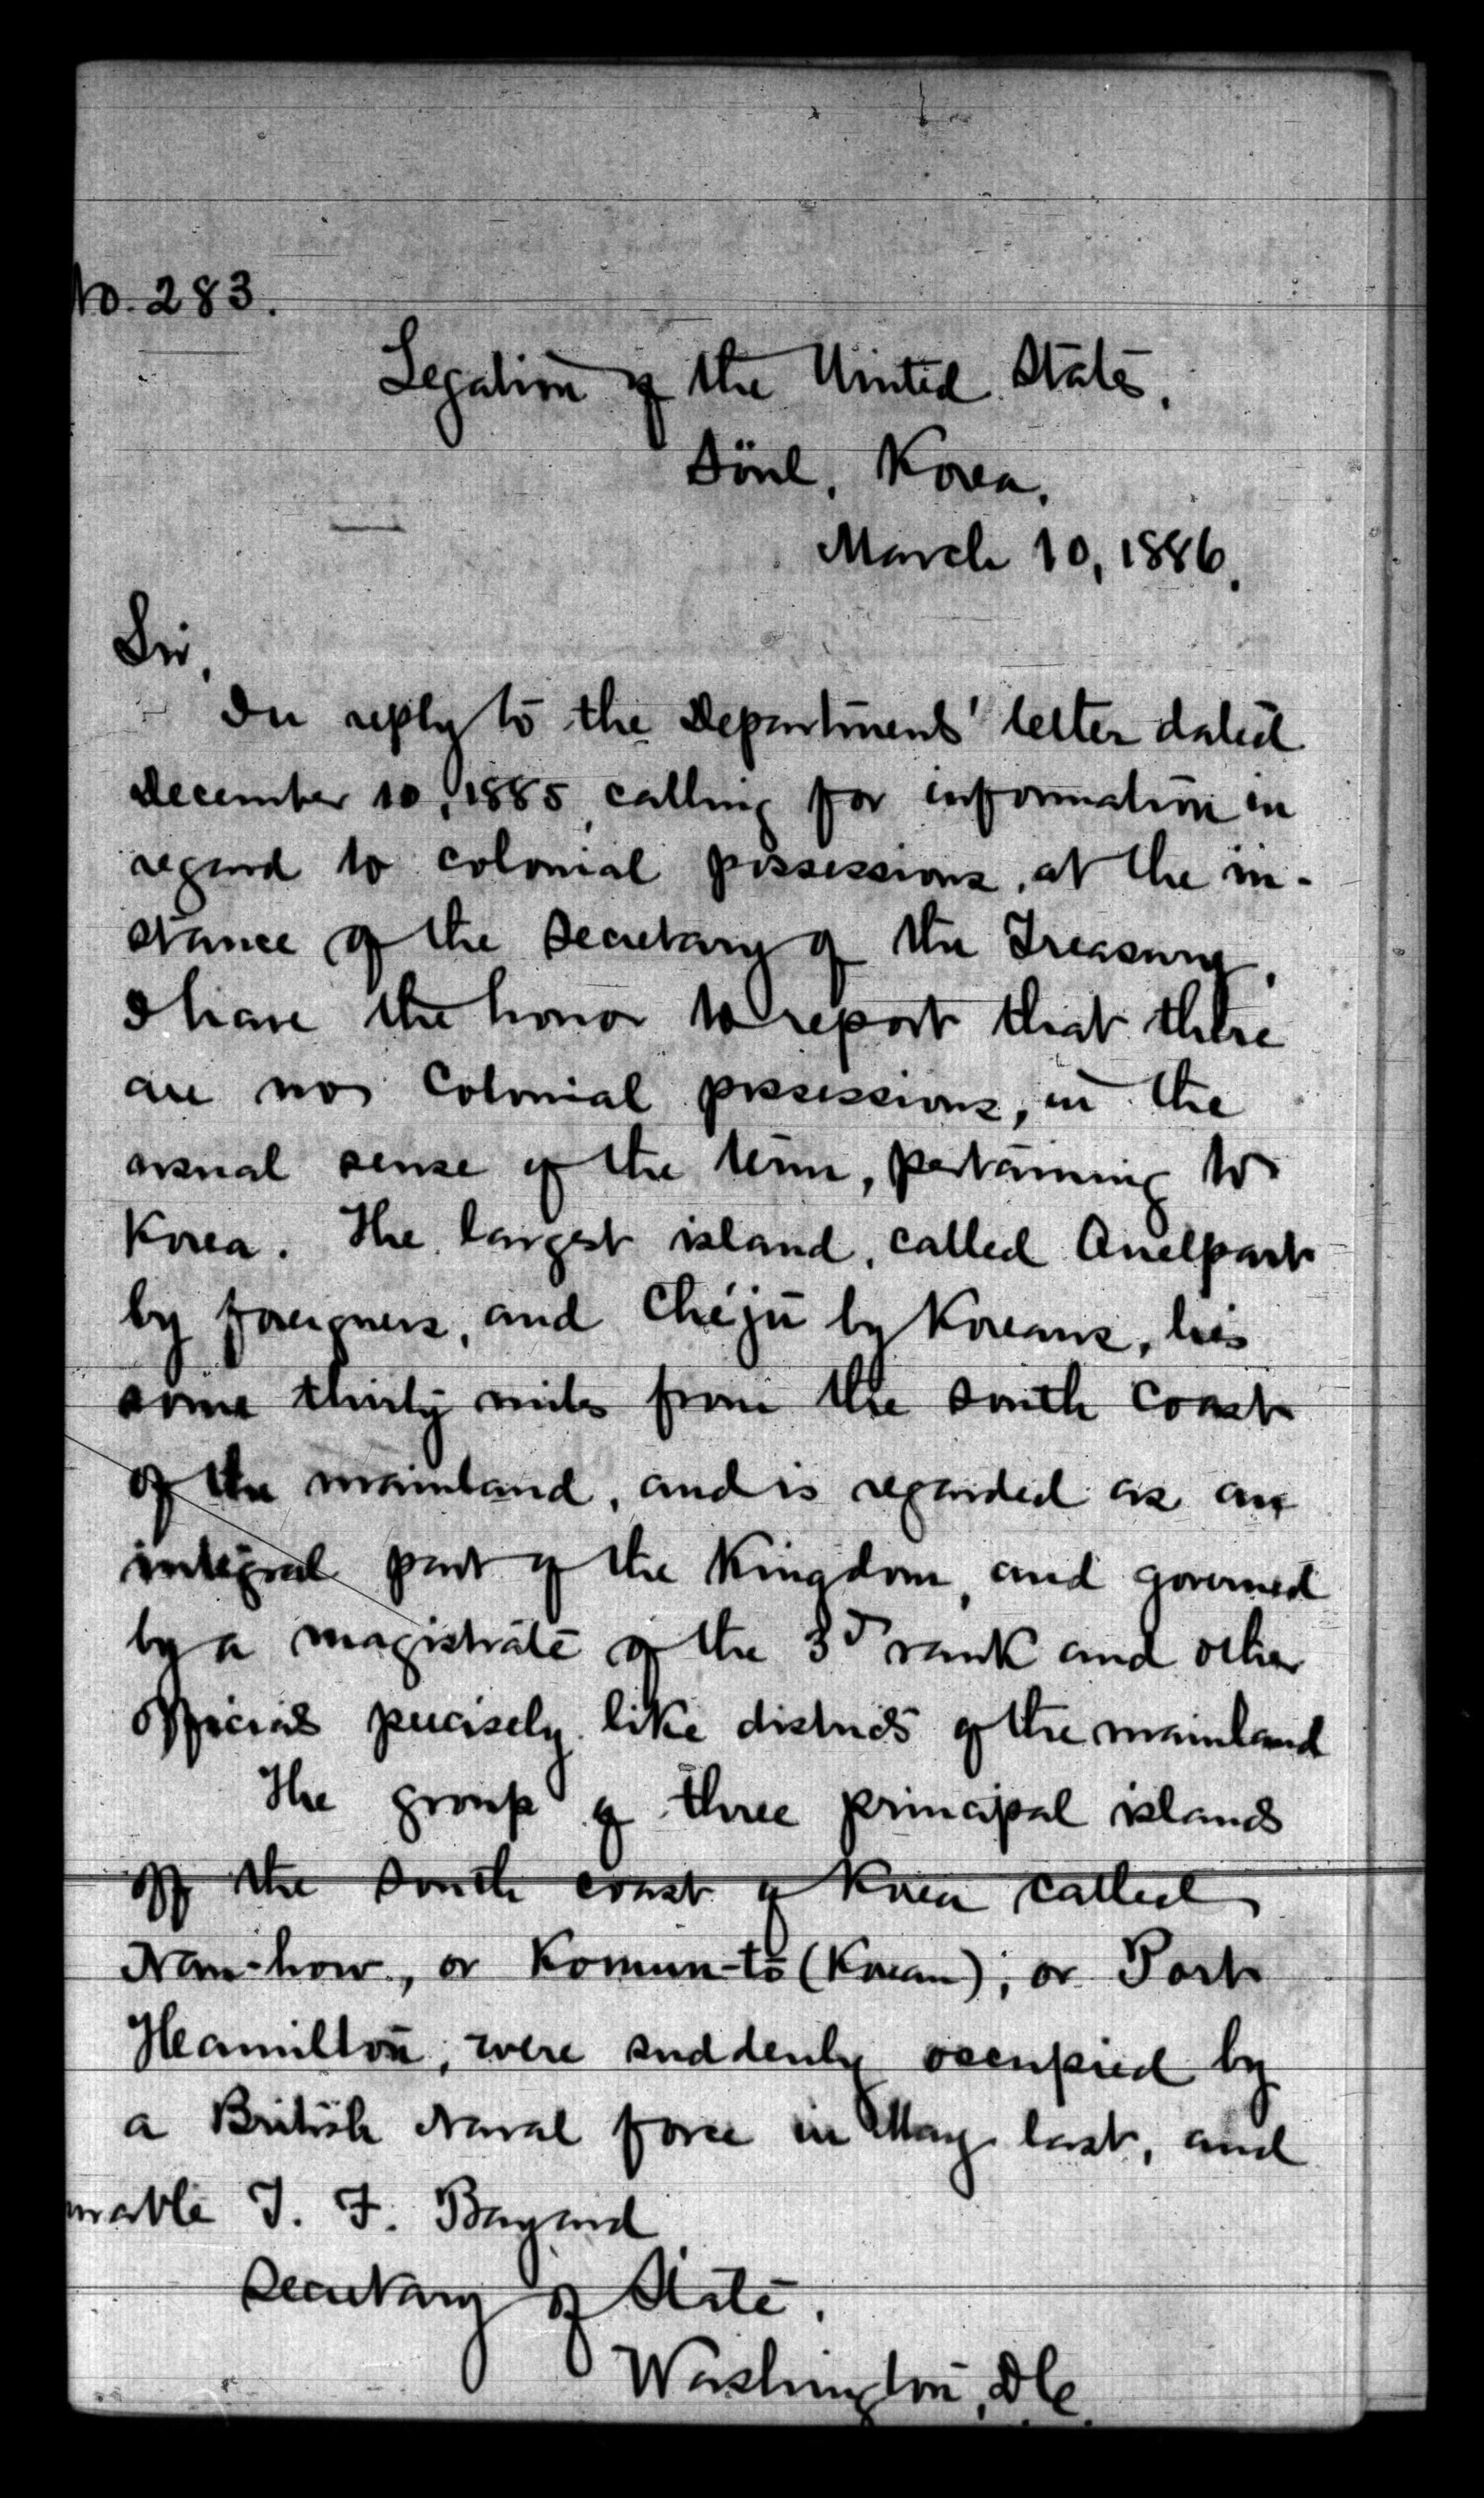 No. 283.
Legation of the United States,
Söul, Korea,
March 10, 1886.
Sir,
In reply to the Departments' letter dated
December 10, 1885, calling for information in
regard to colonial possessions, at the in-
stance of the Secretary of the Treasury,
I have the honor to report that there
are no Colonial possessions, in the
usual sense of the term, pertaining to
Korea. The largest island, called Quelpart
by foreigners, and Chéju by Koreans, lies
some thirty miles from the south coast
of the mainland, and is regarded as an
integral part of the Kingdom, and governed
by a magistrate of the 3d rank and other
officials precisely like districts of the mainland
The group of three principal islands
off the South coast of Korea called
Nan-how, or Komun-to (Korean), or Port
Hamilton, were suddenly occupied by
a British Naval force in May last, and
orable T. F. Bayard
Secretary of State,
Washington, D.C.